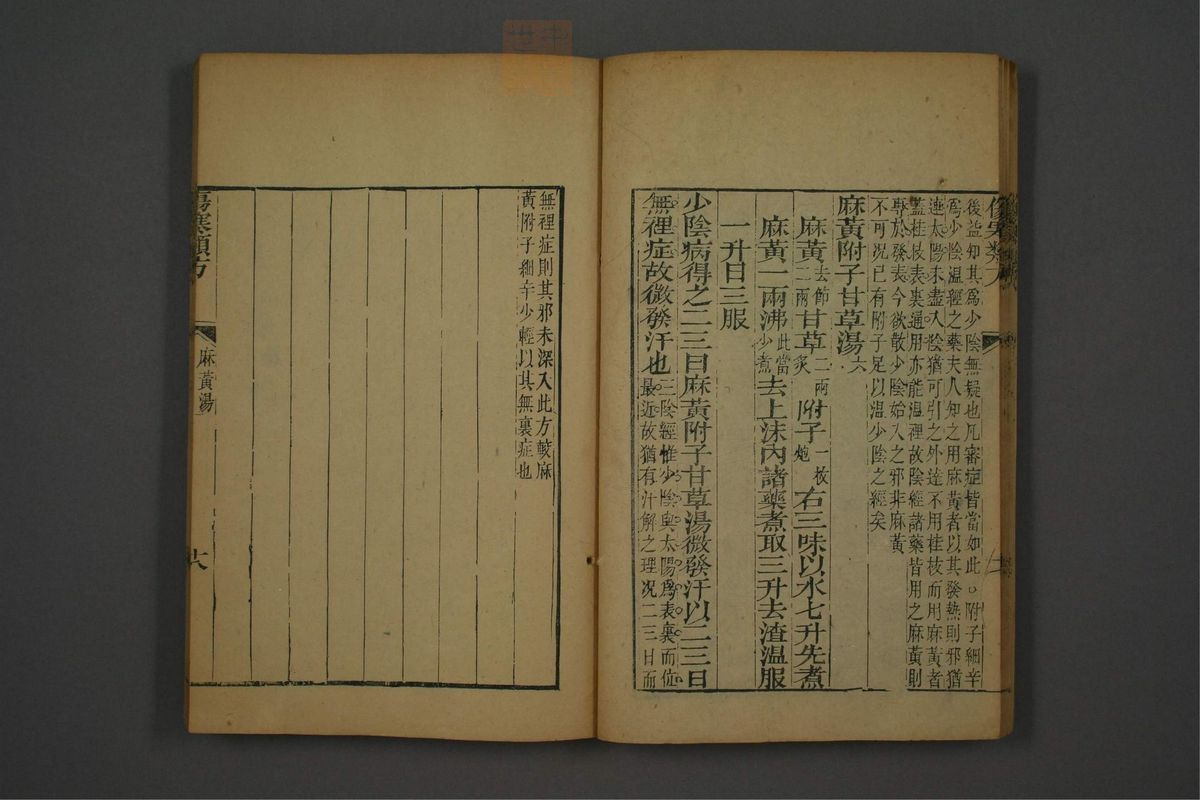 後益知其為少陰無疑也凡審症皆當如此○附子細辛
為少陰溫經之藥夫人知之用麻黃者以其發熱則邪猶
連太陽未盡入陰猶可引之外達不用桂枝而用麻黃者
蓋桂枝表裏通用亦能溫裡故陰經諸藥皆用之麻黃則
專於發表今欲散少陰始入之邪非麻黃
不可況已有附子足以溫少陰之經矣
麻黃附子甘草湯六
麻黃二兩去節甘草二兩炙附子一枚炮右三味以水七升先煮
麻黃一兩沸此當少煮去上沫內諸藥煮取三升去渣溫服
一升日三服
少陰病得之二三日麻黃附子甘草湯微發汗以二三日
無裡症故微發汗也三陰經惟少陰與太陽為表裏而位
最近故猶有汁解之理況二三日而
無裡症則其邪未深入此方較麻
黃附子細辛少輕以其無裏症也
傷寒類方
麻黃湯
六